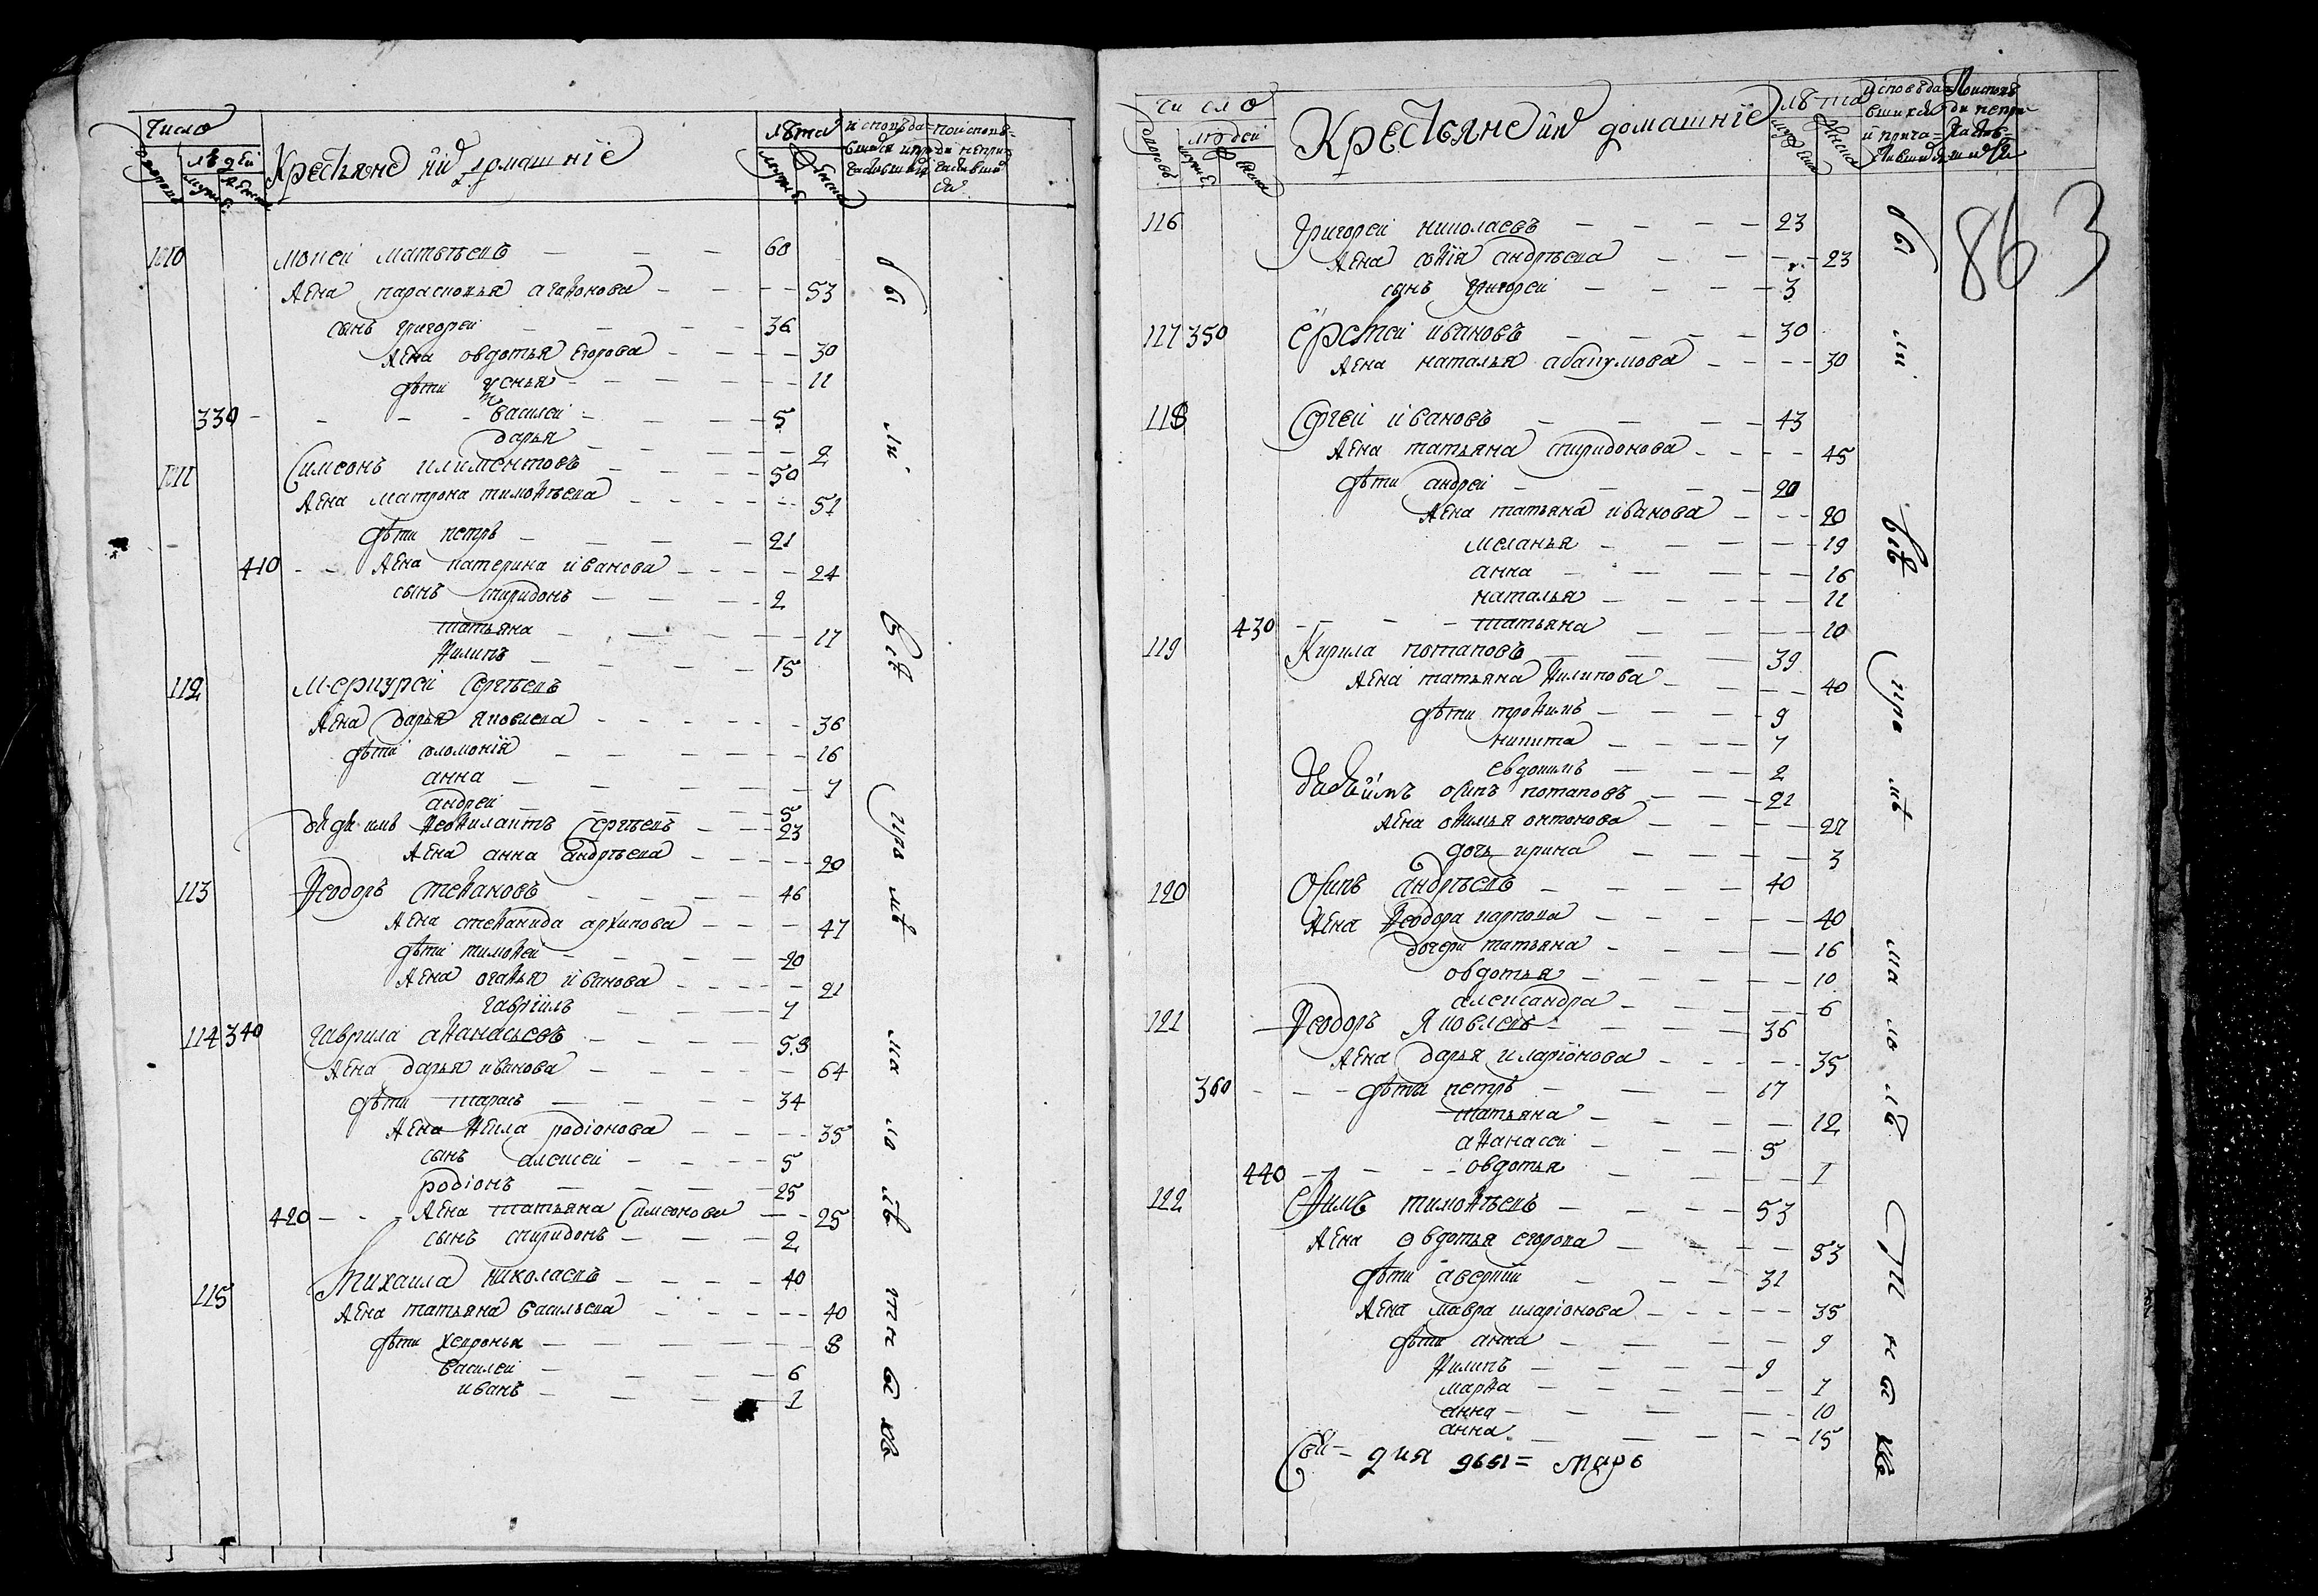 Число
дворовъ
людей
мужеска
женска
Крестьяне и ихъ домашніе
лѣта
мужеска
женска
исповѣдавшихся и причастившихся
по исповѣди непричастившихся
110 Моисей Матвѣевъ — 60
Жена Парасковья Агафонова — 53
сынъ Григорей — 36
Жена Овдотья Егорова — 30
дѣти Уснья — 11
330 Василей — 5
Дарья — 2
111 Симеонъ Климентовъ — 50
Жена Матрона Тимофѣева — 51
дѣти Петръ — 21
410 Жена Катерина Иванова — 24
сынъ Спиридонъ — 2
Татьяна — 17
Филипъ — 15
112 Меркурей Сергѣевъ
Жена Дарья Яковлева — 36
дѣти Соломонія — 16
Анна — 7
Андрей — 5
Феофилактъ Сергѣевъ — 23
Жена Анна Андрѣева — 20
113 Феодоръ Стефановъ — 46
Жена Стефанида Архипова — 47
дѣти Тимофей — 20
Жена Огафья Иванова — 21
Гавріилъ — 7
114 340 Гаврила Афанасьевъ — 58
Жена Дарья Иванова — 64
дѣти Тарасъ — 34
Жена Фекла Родіонова — 35
сынъ Алексей — 5
Родіонъ — 25
420 Жена Татьяна Симеонова — 25
сынъ Спиридонъ — 2
115 Михаила Николаевъ — 40
Жена Татьяна Васильева — 40
дѣти Хевронья — 8
Василей — 6
Иванъ — 1
бы ли
всѣ
про мѣ
ма ло лѣ
т н ы хъ
Число
дворовъ
людей
мужеска
женска
Крестьяне и ихъ домашніе
лѣта
мужеска
женска
исповѣдавшихся и причастившихся
По исповѣди непричастившихся
863
116 Григорей Николаевъ — 23
Жена Софія Андрѣева — 23
сынъ Григорей — 3
117 350 Ерофей Ивановъ — 30
Жена Наталья Абакумова — 30
118 Сергей Ивановъ — 43
Жена Татьяна Спиридонова — 45
дѣти Андрей — 20
Жена Татьяна Иванова — 20
Меланья — 19
Анна — 16
Наталья — 11
430 Татьяна — 10
119 Кирила Потаповъ — 39
Жена Татьяна Филипова — 40
дѣти Трофимъ — 9
Никита — 7
Евдокимъ — 2
Осипъ Потаповъ — 21
Жена Офимья Онтонова — 27
дочь Ирина — 3
120 Осипъ Андрѣевъ — 40
Жена Феодора Карпова — 40
дочери Татьяна — 16
Овдотья — 10
Александра — 6
121 Феодоръ Яковлевъ — 36
Жена Дарья Иларіонова — 35
360 дѣти Петръ — 17
Татьяна — 12
Афанасей — 5
440 Овдотья — 1
122 Ефимъ Тимофѣевъ — 53
Жена Овдотья Егорова — 53
дѣти Аверкии — 31
Жена Мавра Иларіонова — 35
дѣти Анна — 9
Филипъ — 9
Марфа — 7
Анна — 10
Анна — 15
бы ли
всѣ
про мѣ
ма ло лѣ
т н ы хъ